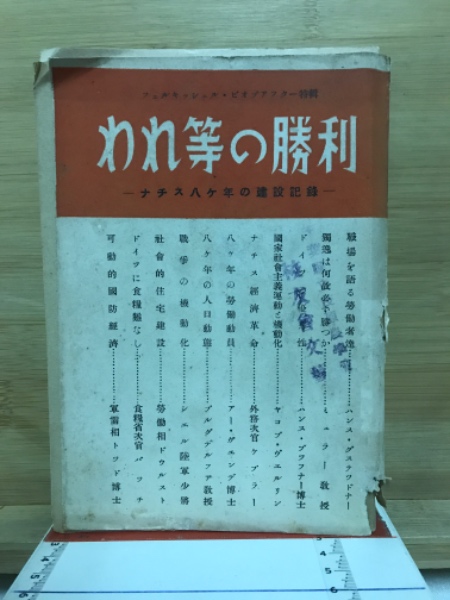 フェルキッシェル・ビオバアフター特輯
われ等の勝利
―ナチス八ケ年の建設記録―
職場を語る勞働者達……ハンス・グスラウドナー
獨逸は何故必ず勝つか……ミュラー教授
ハンス・ブフナー博士
國家社會主義運動と機動化……ヤコブ・ヴェルリン
ナチス經濟革命……外務次官ケプラー
八ケ年の勞働動員……アー・ヴェンデ博士
八ケ年の人口動態……ブルグデルファ教授
戰爭の機動化……シェル陸軍少將
社會的住宅建設……勞働相ドクルスト
ドイツに食糧難なし……食糧省次官バッケ
可動的國防經濟……軍需相トッド博士